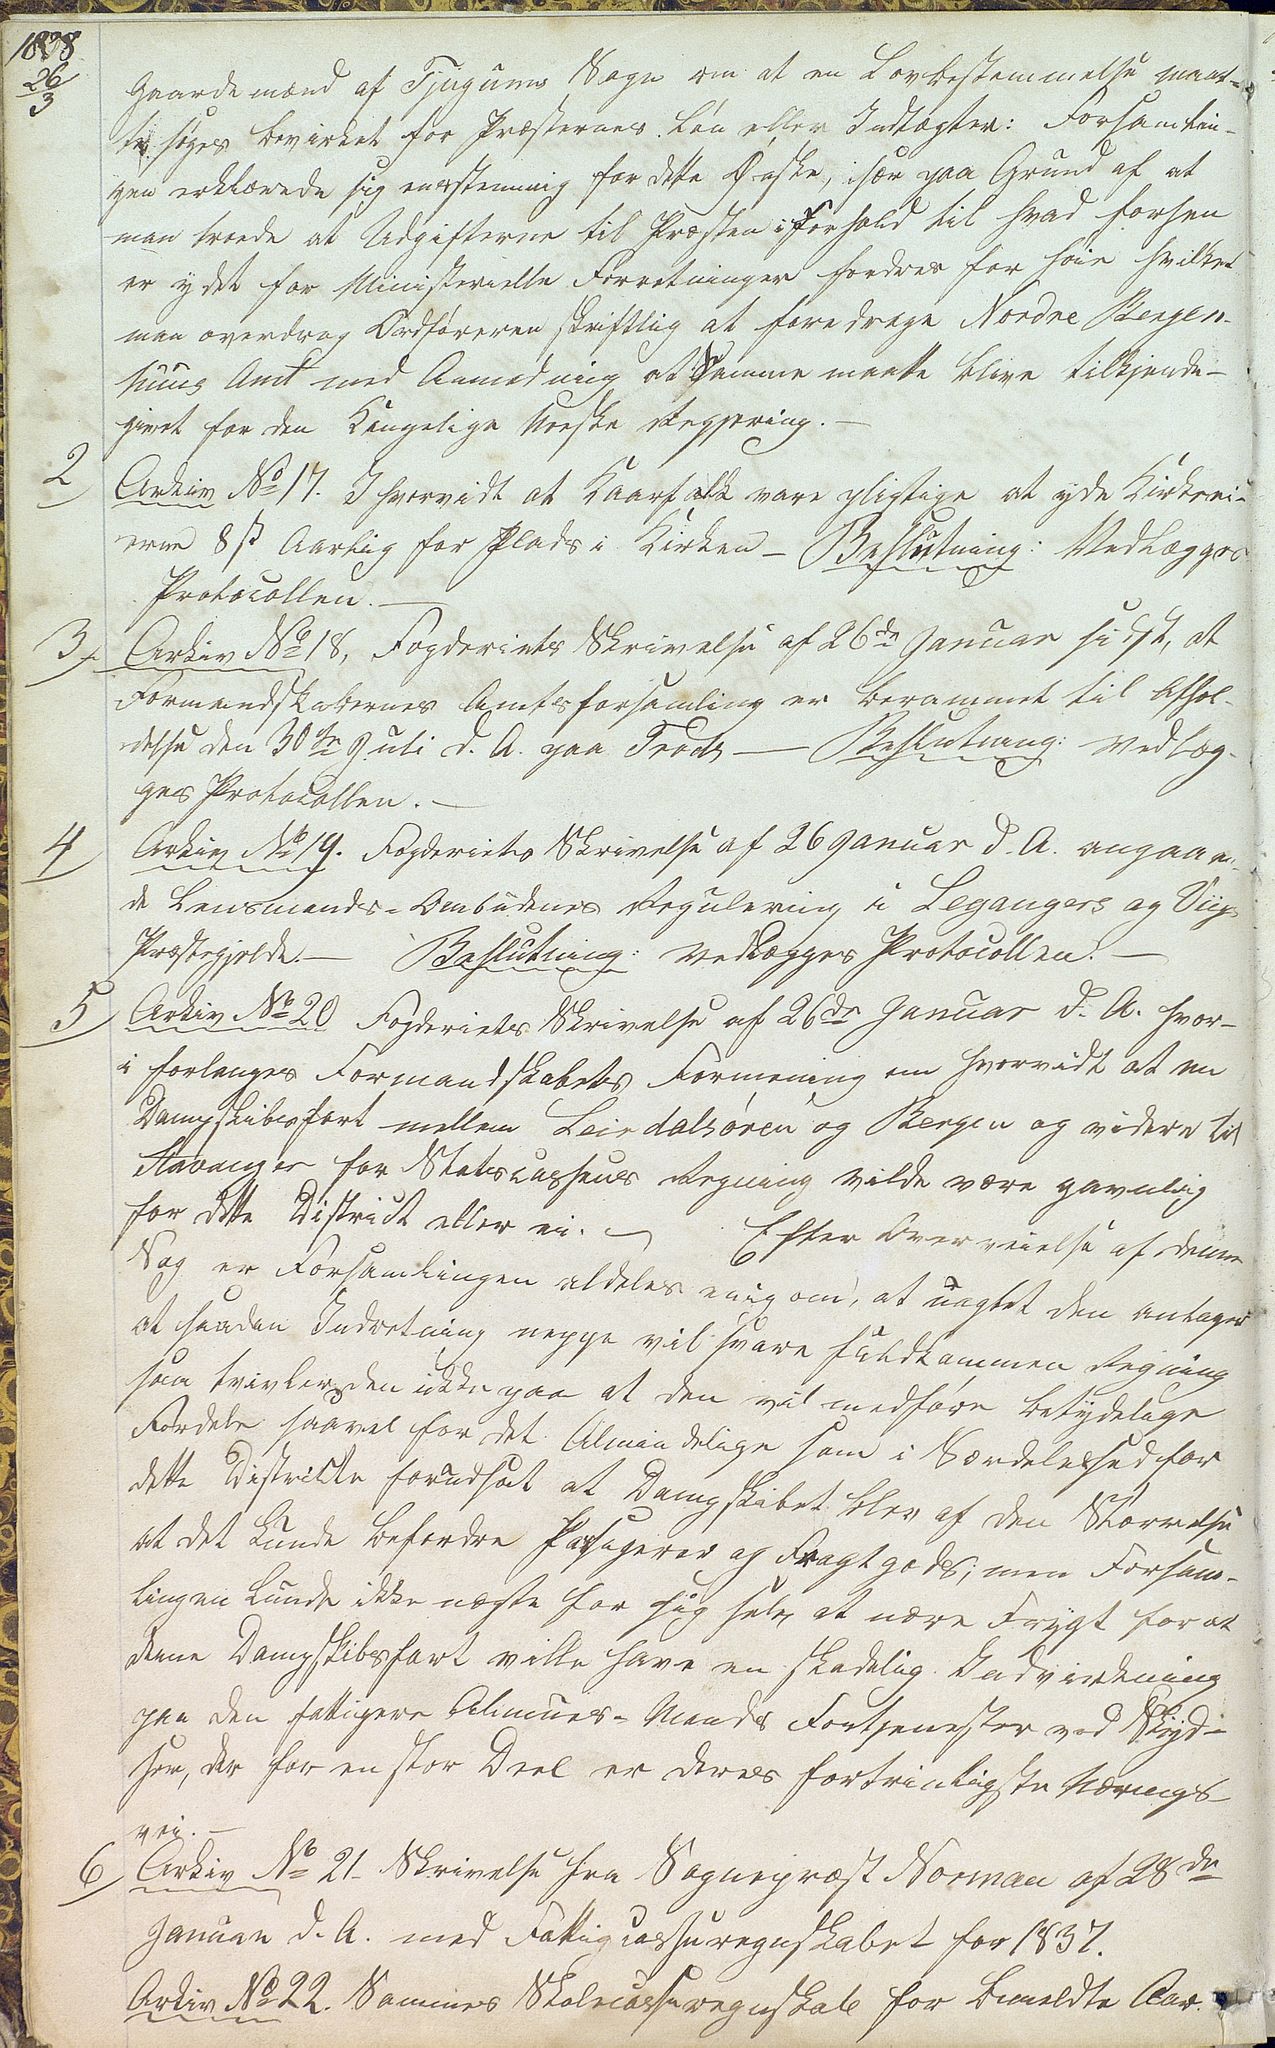 1838
26/3
Gaardemænd af Tjugums Sogn om at en Lovbestemmelse maat-
te søges bevirket for Præsternes Løn eller Indtægter: Forsamlin-
gen erklærede sig eensstemmig for dette Ønske, især paa Grund af at
man troede at Udgifterne til Præsten i Forhold til hvad forhen
er ydet for Ministerielle Forretninger fordres for høie hvilket
man overdrog Ordføreren skriftlig at foredrage Nordre Bergen-
huus Amt med Anmodning at Samme maatte blive tilkjende-
givet for den Kongelige Norske Regjering. —
2 Arkiv No 17. I hvorvidt at Kaarfolk vare pligtige at yde Kirkeei-
erne 8 s Aarlig for Plads i Kirken — Beslutning: Vedlægges
Protocollen. —
3 Arkiv No 18, Fogderiets Skrivelse af 26de Januar sidst, at
Formandskabernes Amtsforsamling er berammet til Afhol-
delse den 30te Juli d. A. paa — Beslutning: vedlæg-
ges Protocollen. —
4 Arkiv No 19. Fogderiets Skrivelse af 26 Januar d. A. angaaen-
de Lensmands-Ombudenes Regulering i Leganger og Viigs
Præstegjelde. — Beslutning: vedlægges Protocollen. —
5 Arkiv No 20 Fogderiets Skrivelse af 26de Januar d. A. hvor-
i forlanges Formandskabets Formening om hvorvidt at en
Dampskibsfart mellem Leirdalsøren og Bergen og videre til
Stavanger for Statscassens Regning vilde være gavnlig
for dette District eller ei. — Efter Overveielse af denne
Sag er Forsamlingen aldeles enig om, at uagtet den antager
at saadan Indretning neppe vil svare fuldkommen Regning
saa tvivler den ikke paa at den vil medføre betydelige
Fordele saavel for det Almindelige som i Særdeleshed for
dette Districkt forudsat at Dampskibet blev af den Størrelse
at det kunde befordre Passagerer og Fragtgods; men Forsam-
lingen kunde ikke nægte for sig selv at nære Frygt for at
denne Dampskibsfart ville have en skadelig Indvirkning
paa den fattigere Almues-Mands Fortjenester ved Skyd-
ser, der for en stor Deel er deres fortrinligste Nærings-
vei. —
6 Arkiv No 21 – Skrivelse fra Sognepræst Norman af 28de
Januar d. A. med Fattigcasseregnskabet for 1837.
Arkiv No 22. Sammes Skolecasseregnskab for bemeldte Aar.